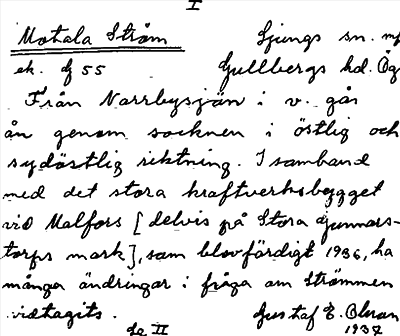 I
Motala Ström Ljungs sn.
ek. bj 55 Gullbergs hd. Ög
Från Norrbysjön i v. går
ån genom socknen i östlig och
sydöstlig riktning. I samband
med det stora kraftverksbygget
vid Malfors [delvis på Stora Gunnars-
torps mark], som blev färdigt 1936, ha
många ändringar i fråga om Strömmen
vidtagits. Gustaf E.
Se II 1937